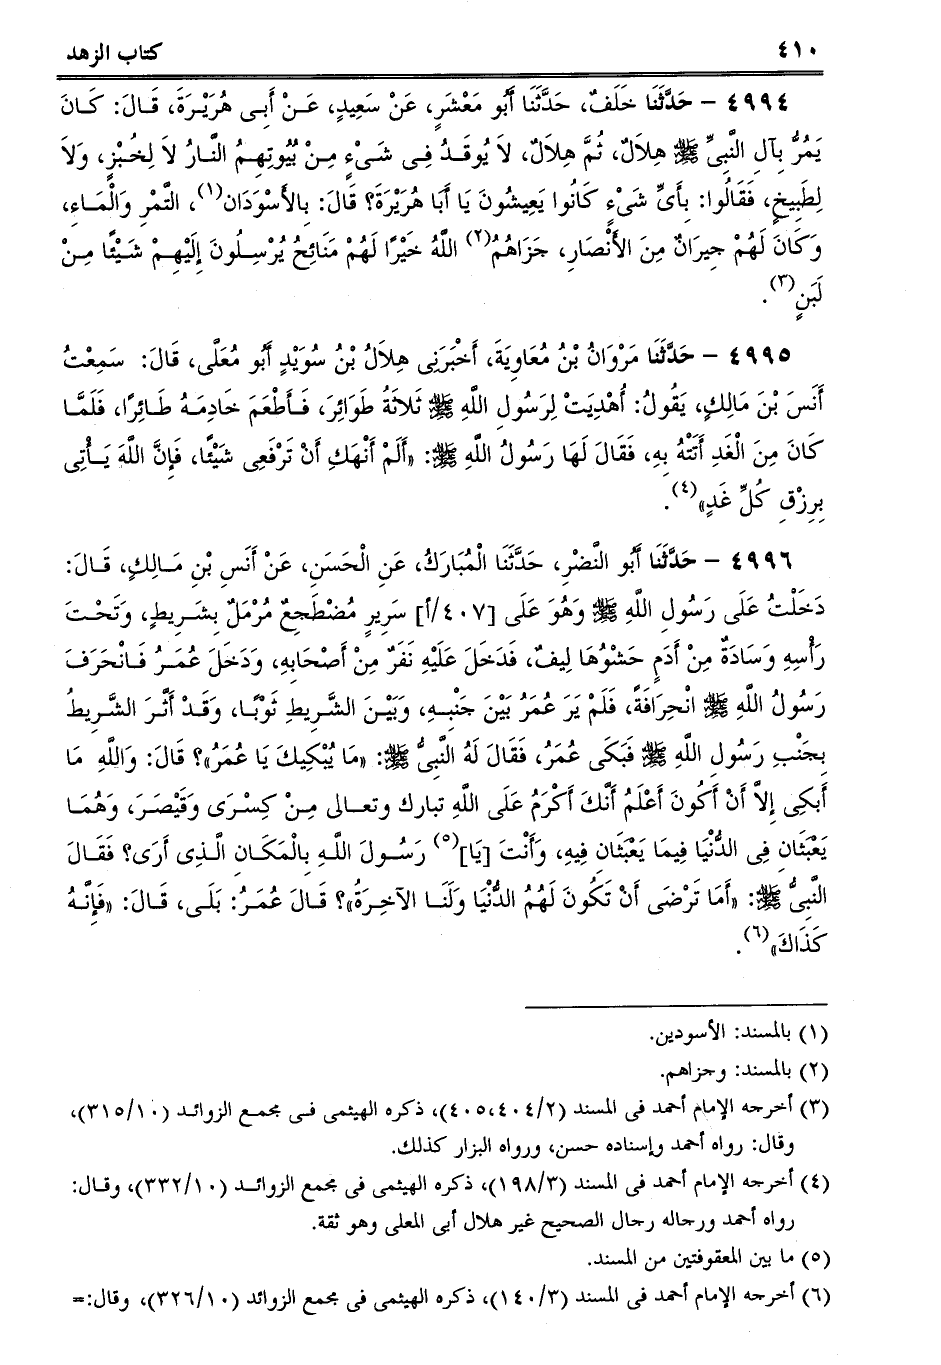 ٤١٠ كتاب الزهد
٤٩٩٤ – حَدَّثَنَا خَلَفٌ، حَدَّثَنَا أَبُو مَعْشَرٍ، عَنْ سَعِيدٍ، عَنْ أَبِى هُرَيْرَةَ، قَالَ: كَانَ
يَمُرُّ بِآلِ النَّبِىِّ ﷺ هِلاَلٌ، ثُمَّ هِلاَلٌ، لاَ يُوقَدُ فِى شَىْءٍ مِنْ بُيُوتِهِمُ النَّارُ لاَ لِخُبْزٍ، وَلاَ
لِطَبِيخٍ، فَقَالُوا: بِأَىِّ شَىْءٍ كَانُوا يَعِيشُونَ يَا أَبَا هُرَيْرَةَ؟ قَالَ: بِالأَسْوَدَان(١)، التَّمْرِ وَالْمَاءِ،
وَكَانَ لَهُمْ جِيرَانٌ مِنَ الأَنْصَارِ، جَزَاهُمُ(٢) اللَّهُ خَيْرًا لَهُمْ مَنَائِحُ يُرْسِلُونَ إِلَيْهِمْ شَيْئًا مِنْ
لَبَنٍ(٣).
٤٩٩٥ – حَدَّثَنَا مَرْوَانُ بْنُ مُعَاوِيَةَ، أَخْبَرَنِى هِلاَلُ بْنُ سُوَيْدٍ أَبُو مُعَلَّى، قَالَ: سَمِعْتُ
أَنَسَ بْنَ مَالِكٍ، يَقُولُ: أُهْدِيَتْ لِرَسُولِ اللَّهِ ﷺ ثَلاَثَةُ طَوَائِرَ، فَأَطْعَمَ خَادِمَهُ طَائِرًا، فَلَمَّا
كَانَ مِنَ الْغَدِ أَتَتْهُ بِهِ، فَقَالَ لَهَا رَسُولُ اللَّهِ ﷺ: «أَلَمْ أَنْهَكِ أَنْ تَرْفَعِى شَيْئًا، فَإِنَّ اللَّهَ يَأْتِى
بِرِزْقِ كُلِّ غَدٍ»(٤).
٤٩٩٦ – حَدَّثَنَا أَبُو النَّضْرِ، حَدَّثَنَا الْمُبَارَكُ، عَنِ الْحَسَنِ، عَنْ أَنَسِ بْنِ مَالِكٍ، قَالَ:
دَخَلْتُ عَلَى رَسُولِ اللَّهِ ﷺ وَهُوَ عَلَى [٤٠٧/أ] سَرِيرٍ مُضْطَجِعٌ مُرْمَلٌ بِشَرِيطٍ، وَتَحْتَ
رَأْسِهِ وَسَادَةٌ مِنْ أَدَمٍ حَشْوُهَا لِيفٌ، فَدَخَلَ عَلَيْهِ نَفَرٌ مِنْ أَصْحَابِهِ، وَدَخَلَ عُمَرُ فَانْحَرَفَ
رَسُولُ اللَّهِ ﷺ انْحِرَافَةً، فَلَمْ يَرَ عُمَرُ بَيْنَ جَنْبِهِ، وَبَيْنَ الشَّرِيطِ ثَوْبًا، وَقَدْ أَثَّرَ الشَّرِيطُ
بِجَنْبِ رَسُولِ اللَّهِ ﷺ فَبَكَى عُمَرُ، فَقَالَ لَهُ النَّبِىُّ ﷺ: «مَا يُبْكِيكَ يَا عُمَرُ»؟ قَالَ: وَاللَّهِ مَا
أَبْكِى إِلاَّ أَنْ أَكُونَ أَعْلَمُ أَنَّكَ أَكْرَمُ عَلَى اللَّهِ تبارك وتعالى مِنْ كِسْرَى وَقَيْصَرَ، وَهُمَا
يَعْبَثَانِ فِى الدُّنْيَا فِيمَا يَعْبَثَانِ فِيهِ، وَأَنْتَ [يَا](٥) رَسُولَ اللَّهِ بِالْمَكَانِ الَّذِى أَرَى؟ فَقَالَ
النَّبِىُّ ﷺ: «أَمَا تَرْضَى أَنْ تَكُونَ لَهُمُ الدُّنْيَا وَلَنَا الآخِرَةُ»؟ قَالَ عُمَرُ: بَلَى، قَالَ: «فَإِنَّهُ
كَذَاكَ»(٦).
(١) بالمسند: الأسودين.
(٢) بالمسند: وجزاهم.
(٣) أخرجه الإمام أحمد فى المسند (٤٠٥،٤٠٤/٢)، ذكره الهيثمى فى مجمع الزوائد (٣١٥/١٠)،
وقال: رواه أحمد وإسناده حسن، ورواه البزار كذلك.
(٤) أخرجه الإمام أحمد فى المسند (١٩٨/٣)، ذكره الهيثمى فى مجمع الزوائد (٣٣٢/١٠)، وقال:
رواه أحمد ورجاله رجال الصحيح غير هلال أبى المعلى وهو ثقة.
(٥) ما بين المعقوفتين من المسند.
(٦) أخرجه الإمام أحمد فى المسند (١٤٠/٣)، ذكره الهيثمى فى مجمع الزوائد (٣٢٦/١٠)، وقال:=